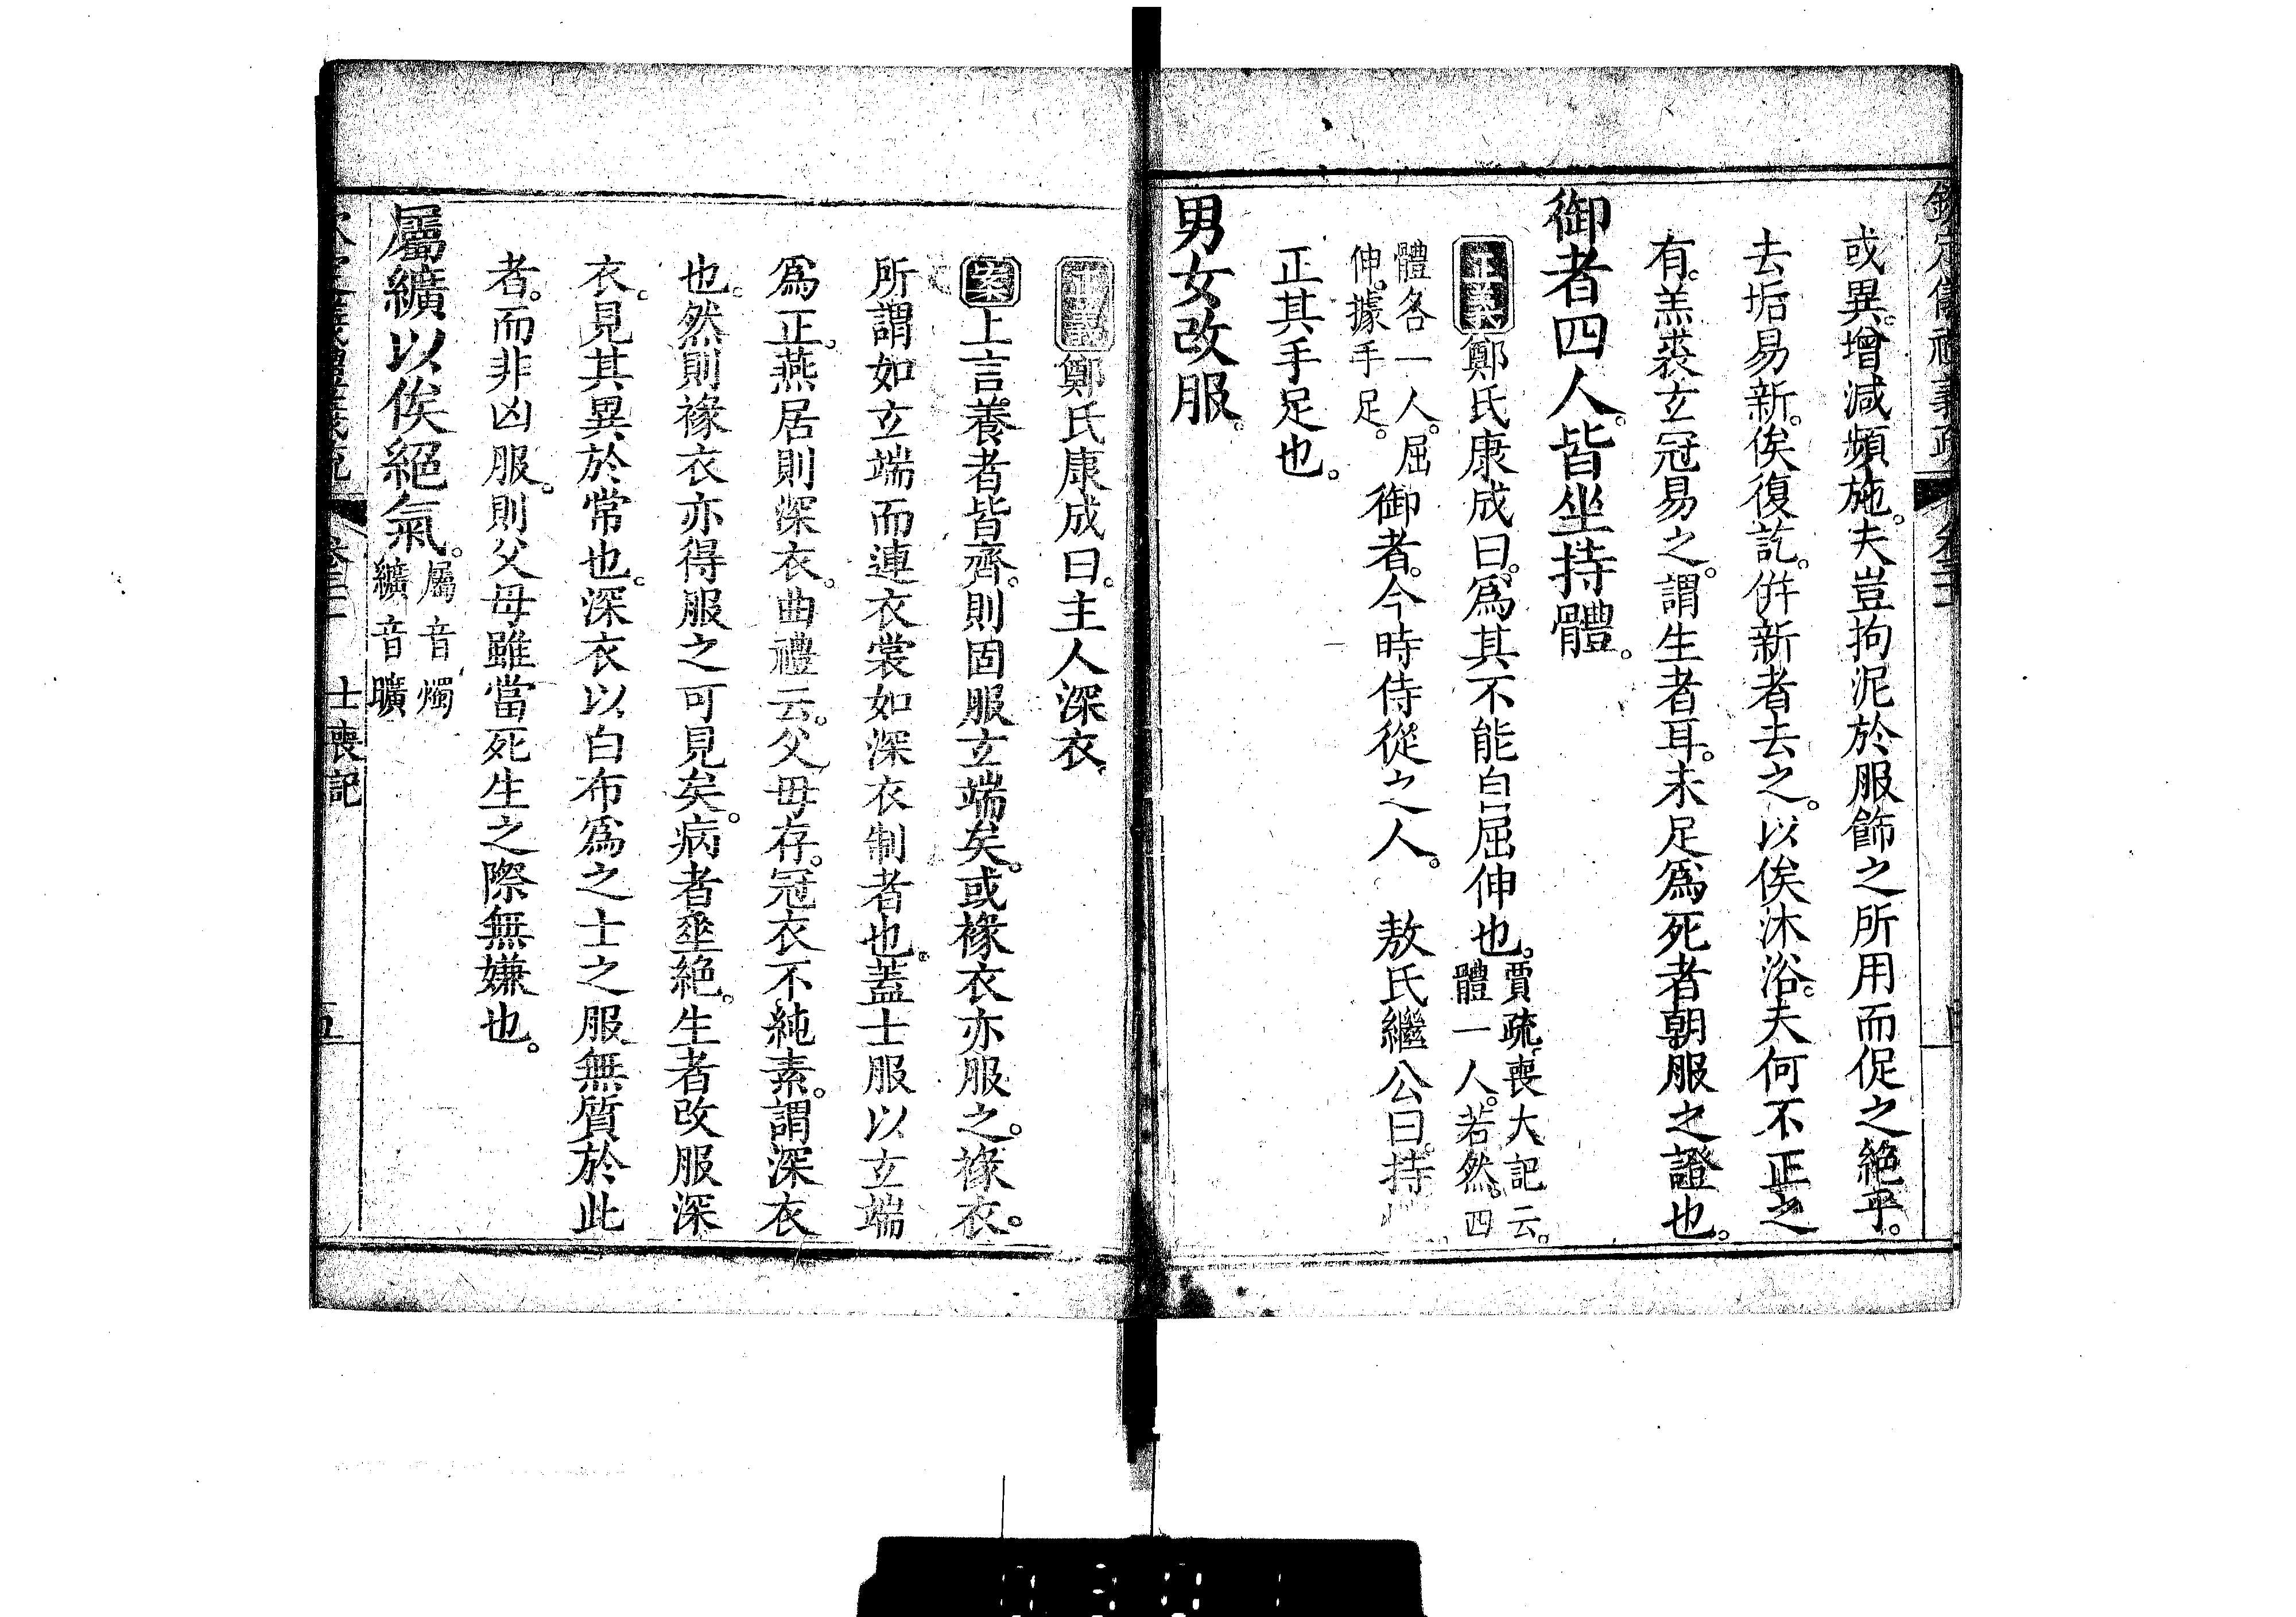 欽定儀禮義疏 卷三十一
或異。增減頻施。夫豈拘泥於服飾之所用而促之絕乎。
去垢易新。俟復訖。併新者去之。以俟沐浴。夫何不正之
有。羔裘玄冠易之。謂生者耳。未足爲死者朝服之證也。
御者四人。皆坐持體。
正義鄭氏康成曰。爲其不能自屈伸也。賈疏。喪大記云。
體一人。若然。四
體各一人。屈
伸。據手足。御者。今時侍從之人。 敖氏繼公曰。持
正其手足也。
男女改服。
正義鄭氏康成曰。主人深衣。
案上言養者皆齊。則固服玄端矣。或褖衣亦服之。褖衣。
所謂如玄端而連衣裳如深衣制者也。蓋士服以玄端
爲正。燕居則深衣。曲禮云。父母存。冠衣不純素。謂深衣
也。然則褖衣亦得服之可見矣。病者垂絕。生者改服深
衣。見其異於常也。深衣以白布爲之士之服無質於此
者。而非凶服。則父母雖當死生之際無嫌也。
屬纊以俟絕氣。屬音燭
纊音曠
士喪記 五